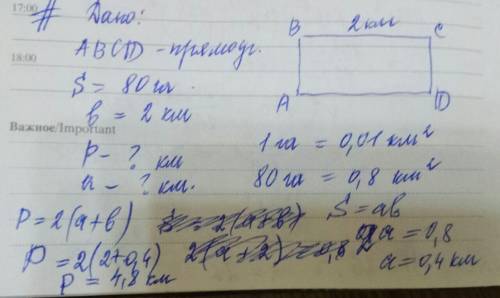 17:00
# Дано:
B 2 км C
ABCD - прямоуг.
18:00
S = 80 га
A D
b = 2 км
Важное/Important
1 га = 0,01 км²
P - ? км
80 га = 0,8 км²
a - ? км.
P = 2(a+b)
S = ab
P = 2(2+0,4)
2a = 0,8
P = 4,8 км
a = 0,4 км